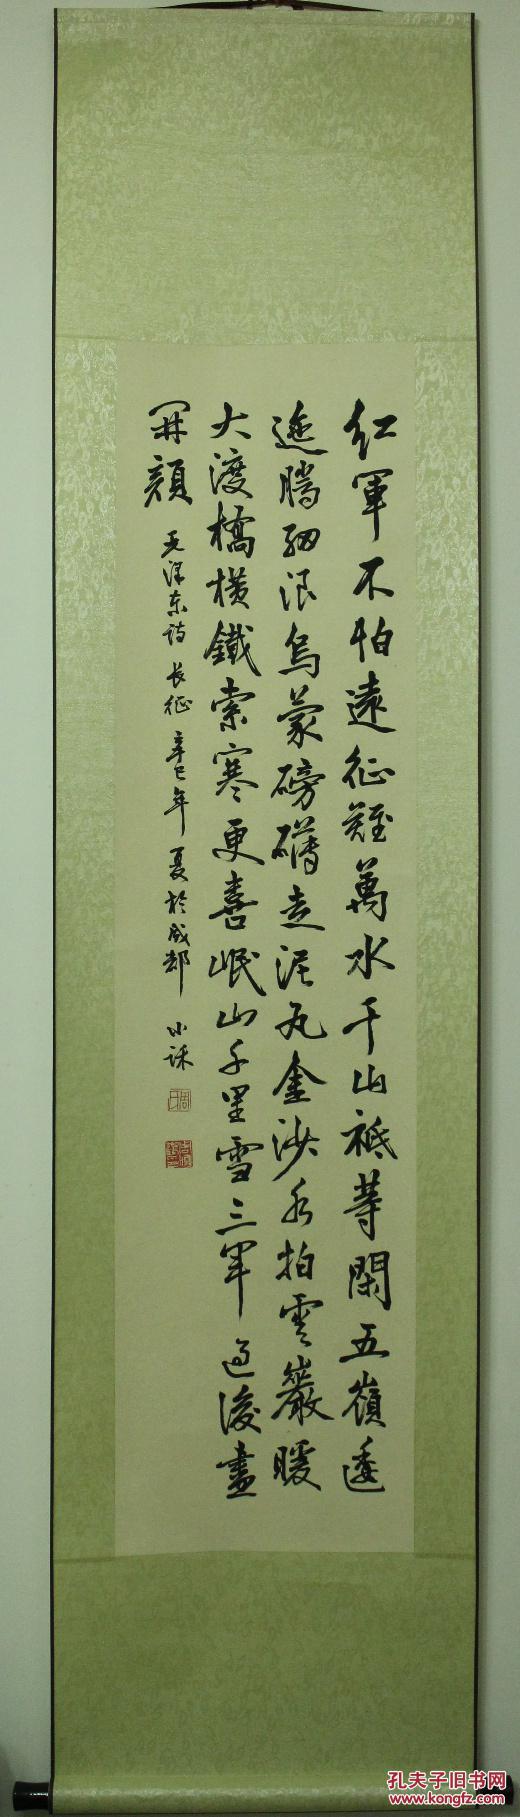 紅軍不怕遠征難萬水千山祗等閑五嶺逶
迤騰細浪烏蒙磅礴走泥丸金沙水拍雲巖暖
大渡橋橫鐵索寒更喜岷山千里雪三軍過後盡
開顏
毛澤东詩 长征 辛巳年 夏於成都
孔夫子旧书网
www.kongfz.com